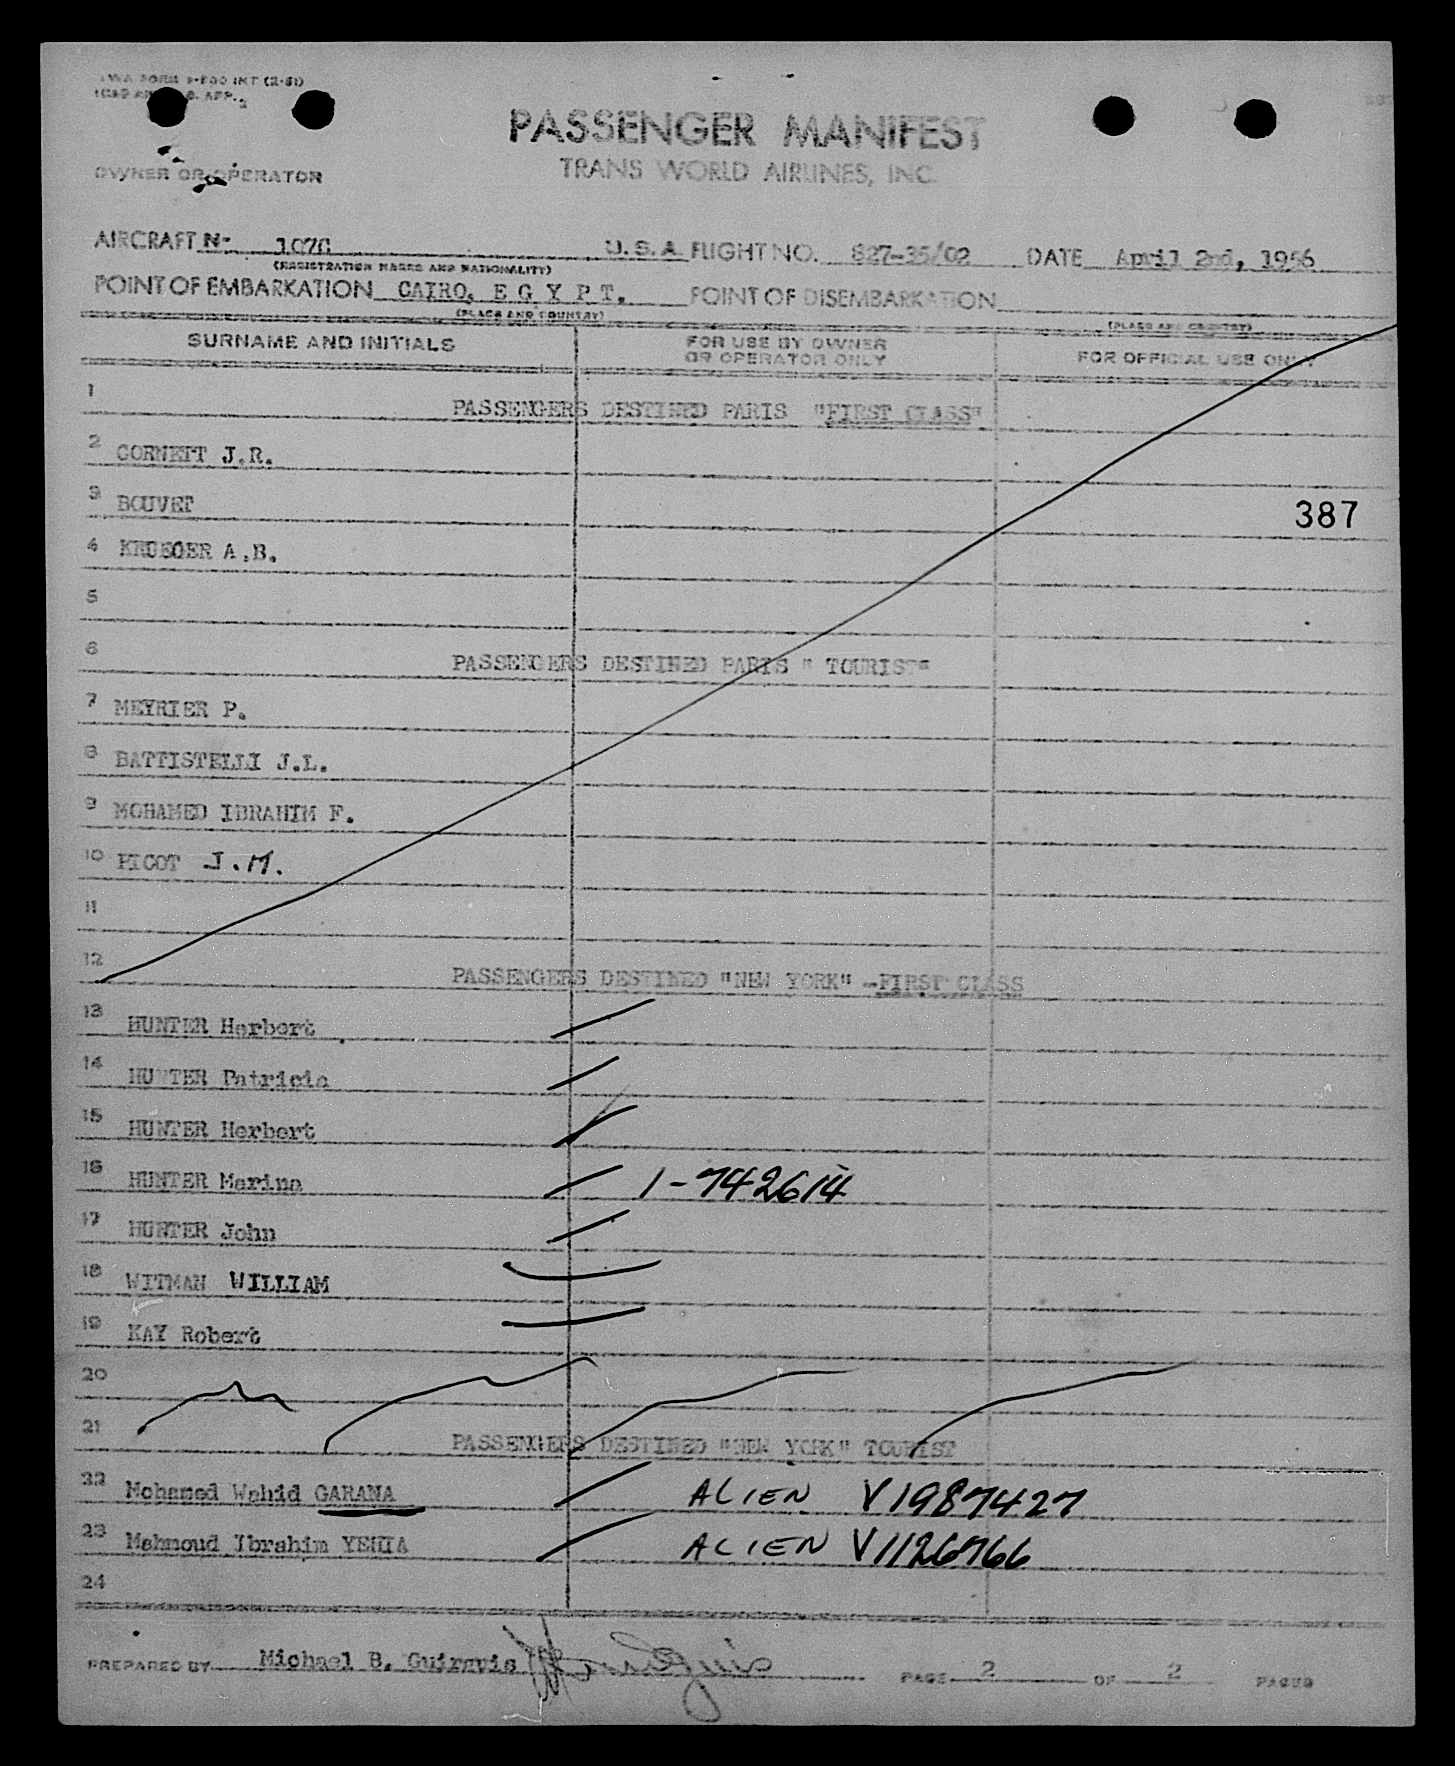 TWA FORM INT (2-51)
OWNER OR OPERATOR
PASSENGER MANIFEST
TRANS WORLD AIRLINES, INC.
AIRCRAFT Nº U.S.A. FLIGHT NO. 827-35/02 DATE April 2nd, 1956
(REGISTRATION MARKS AND NATIONALITY)
POINT OF EMBARKATION CAIRO, E G Y P T. POINT OF DISEMBARKATION
(PLACE AND COUNTRY) (PLACE AND COUNTRY)
SURNAME AND INITIALS FOR USE BY OWNER OR OPERATOR ONLY FOR OFFICIAL USE ONLY
1 PASSENGERS DESTINED PARIS "FIRST CLASS"
2 CORNETT J.R.
3 BOUVET 387
4 KRUEGER A.B.
5
6 PASSENGERS DESTINED PARIS " TOURIST"
7 MEYRIER P.
8 BATTISTELLI J.L.
9 MOHAMED IBRAHIM F.
10 PICOT J.M.
11
12 PASSENGERS DESTINED "NEW YORK" -FIRST CLASS
13 HUNTER Herbert
14 HUNTER Patricia
15 HUNTER Herbert
16 HUNTER Marina 1-742614
17 HUNTER John
18 WITMAN WILLIAM
19 KAY Robert
20
21 PASSENGERS DESTINED "NEW YORK" TOURIST
22 Mohamed Wahid GARANA ALIEN V1987427
23 Mahmoud Ibrahim YEHIA ALIEN V1126766
24
PREPARED BY Michael B. PAGE 2 OF 2 PAGES